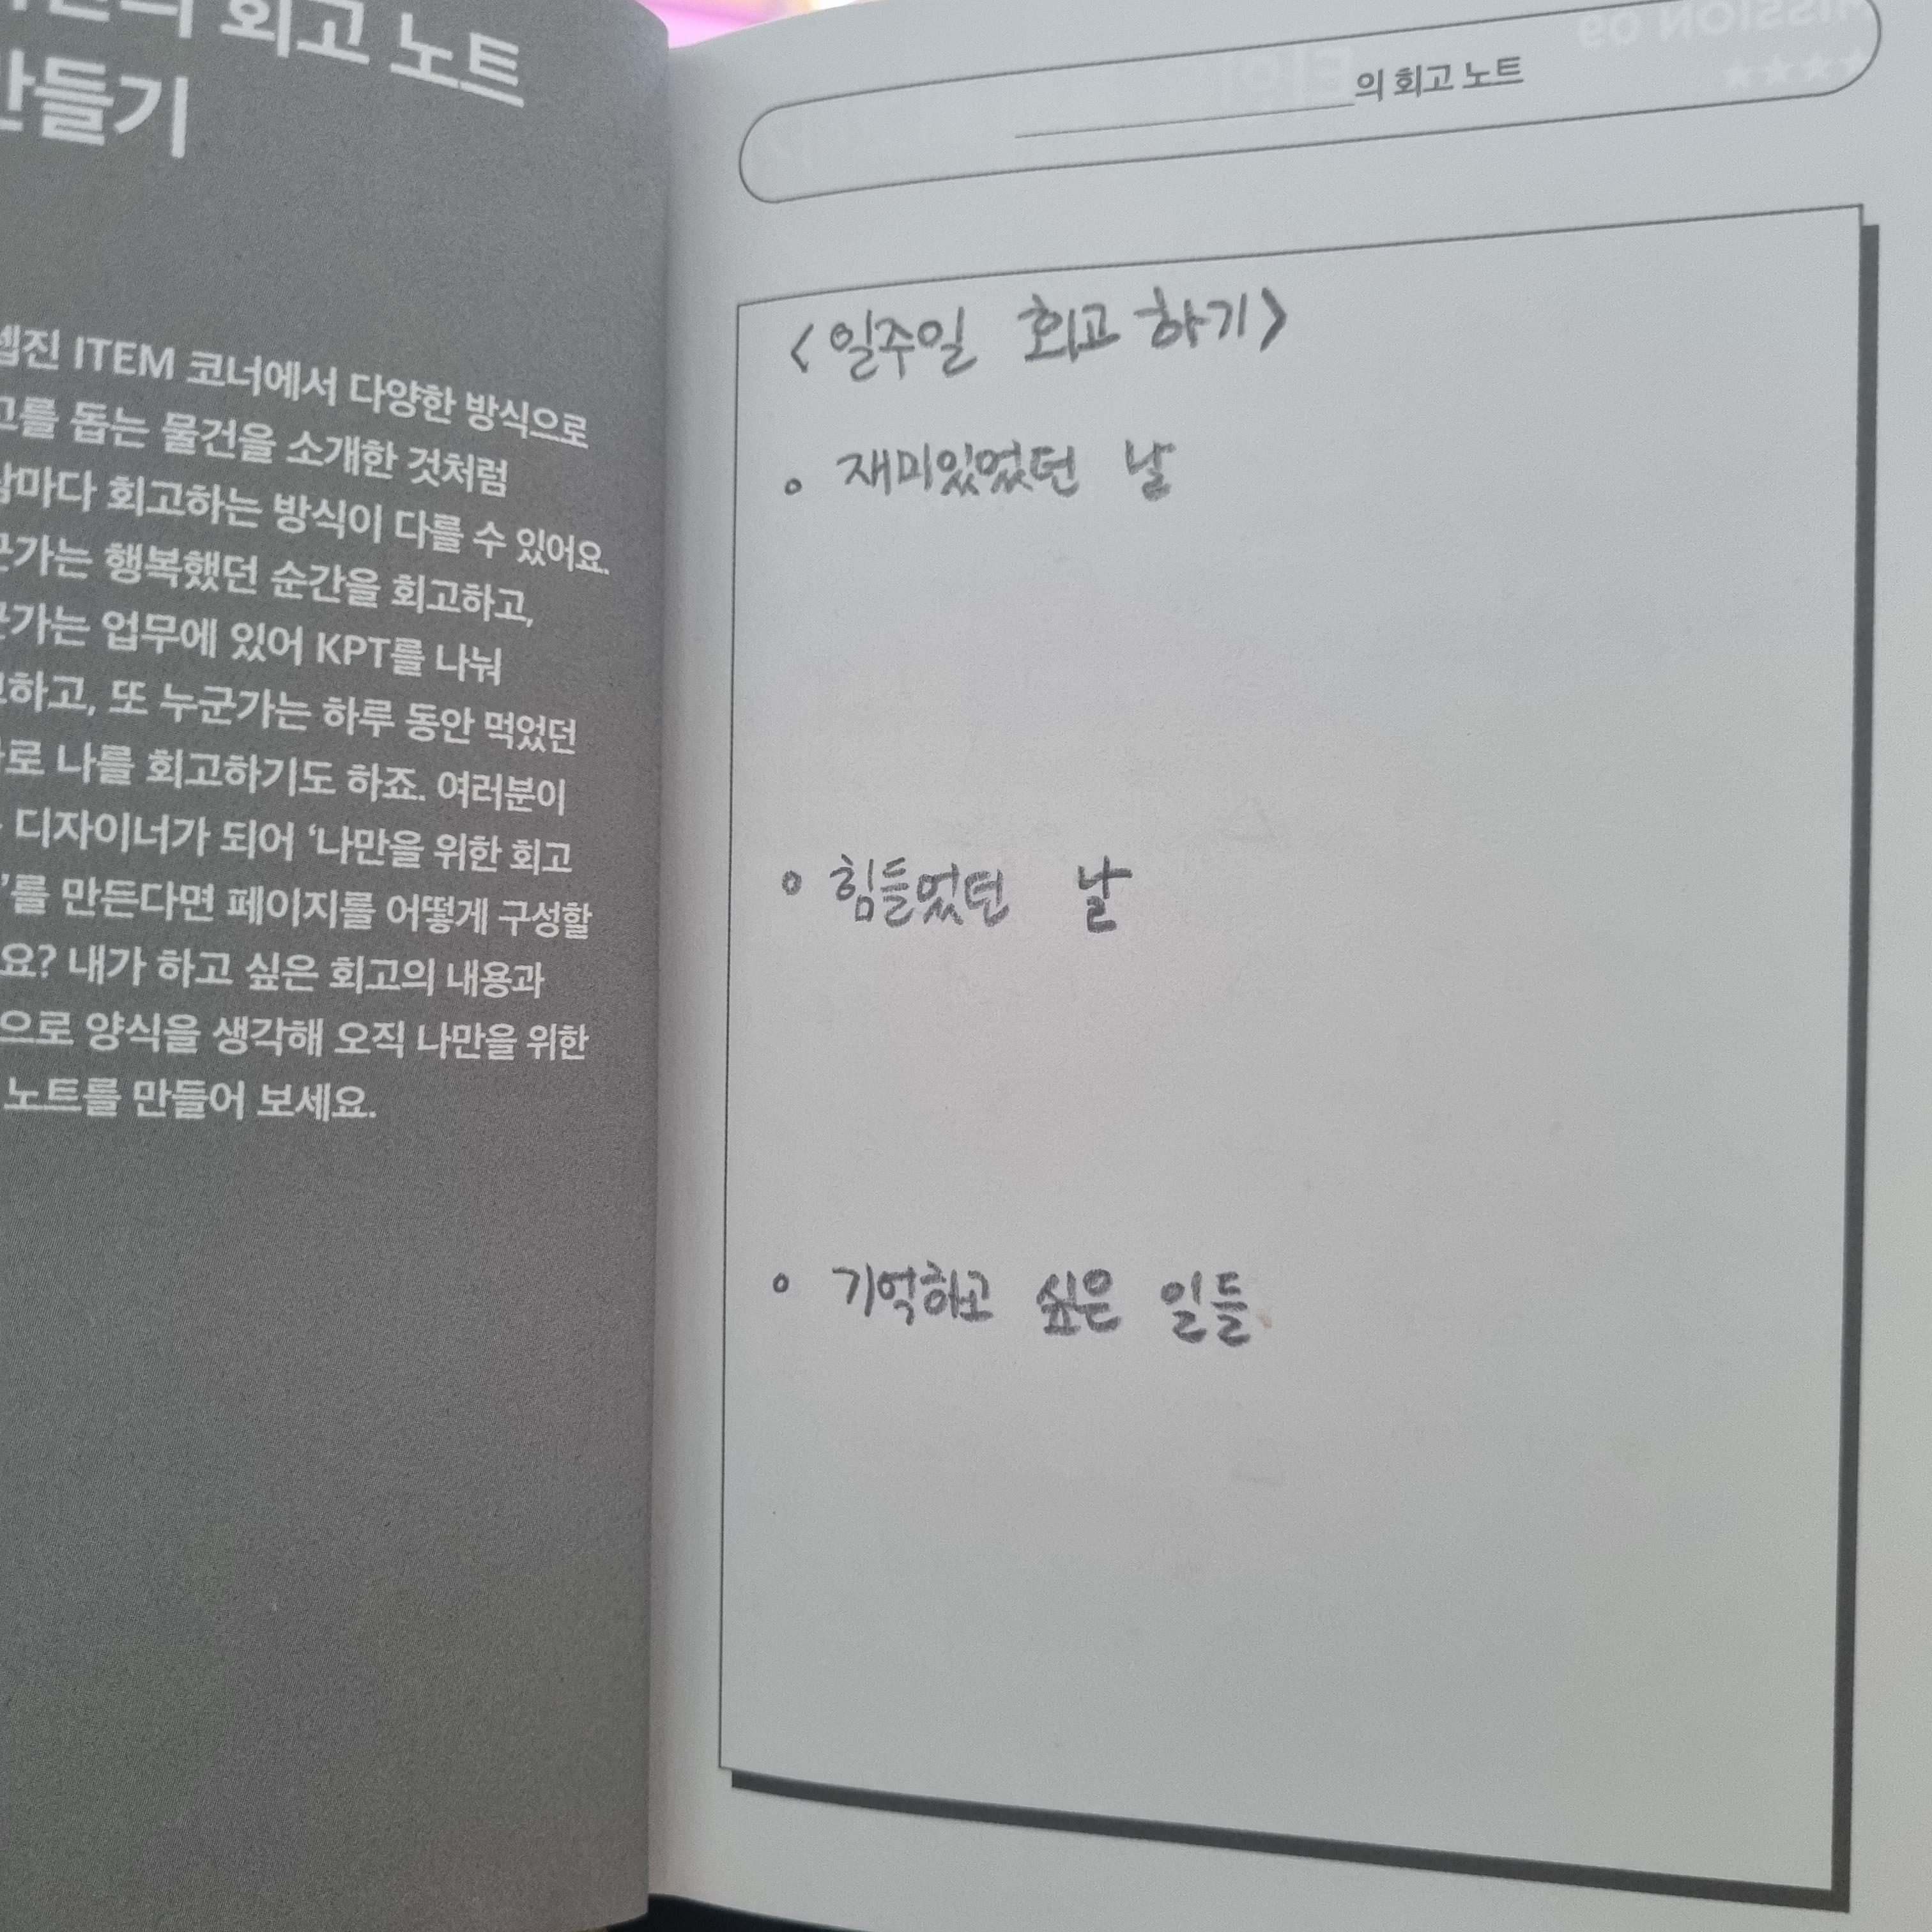 회고 노트
만들기
ITEM 코너에서 다양한 방식으로
돕는 물건을 소개한 것처럼
회고하는 방식이 다를 수 있어요.
행복했던 순간을 회고하고,
업무에 있어 KPT를 나눠
또 누군가는 하루 동안 먹었던
나를 회고하기도 하죠. 여러분이
디자이너가 되어 ‘나만을 위한 회고
’를 만든다면 페이지를 어떻게 구성할
요? 내가 하고 싶은 회고의 내용과
으로 양식을 생각해 오직 나만을 위한
노트를 만들어 보세요.
의 회고 노트
<일주일 회고 하기>
◦ 재미있었던 날
◦ 힘들었던 날
◦ 기억하고 싶은 일들